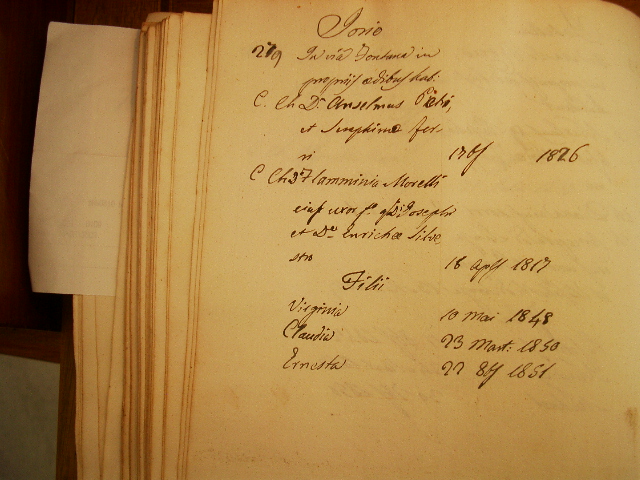 Iorio
279 In via Fontana in
propriis ædibus hab.
C. Ch D. Anselmus Pietri,
et Seraphinæ Fer-
ri 17 bf 1826
C Ch Dª Flamminia Morelli
eius uxor fª qD. Josephi
et Dæ Enrichæ Silve
stro 18 Apls 1817
Filii
Virginia 10 Mai 1848
Claudia 23 Mart: 1850
Ernesta 22 8bf 1851